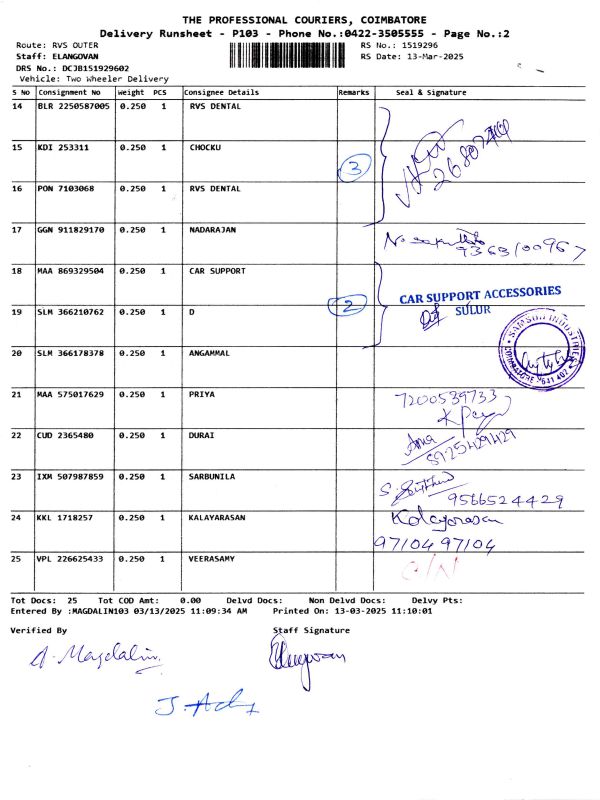 THE PROFESSIONAL COURIERS, COIMBATORE
Delivery Runsheet - P103 - Phone No.:0422-3505555 - Page No.:2
Route: RVS OUTER RS No.: 1519296
Staff: ELANGOVAN RS Date: 13-Mar-2025
DRS No.: DCJB151929602
Vehicle: Two Wheeler Delivery
S No Consignment No Weight PCS Consignee Details Remarks Seal & Signature
14 BLR 2250587005 0.250 1 RVS DENTAL
15 KDI 253311 0.250 1 CHOCKU
3
16 PON 7103068 0.250 1 RVS DENTAL
17 GGN 911829170 0.250 1 NADARAJAN
9363100967
18 MAA 869329504 0.250 1 CAR SUPPORT
CAR SUPPORT ACCESSORIES
SULUR
19 SLM 366210762 0.250 1 D 2
SAMSON INDUSTRIES
COIMBATORE 641 402
20 SLM 366178378 0.250 1 ANGAMMAL
21 MAA 575017629 0.250 1 PRIYA 7200539733
22 CUD 2365480 0.250 1 DURAI
8925429429
23 IXM 507987859 0.250 1 SARBUNILA
9566524429
24 KKL 1718257 0.250 1 KALAYARASAN Kalayarasan
97104 97104
25 VPL 226625433 0.250 1 VEERASAMY O/N
Tot Docs: 25 Tot COD Amt: 0.00 Delvd Docs: Non Delvd Docs: Delvy Pts:
Entered By :MAGDALIN103 03/13/2025 11:09:34 AM Printed On: 13-03-2025 11:10:01
Verified By Staff Signature
A. Magdalin Elangovan